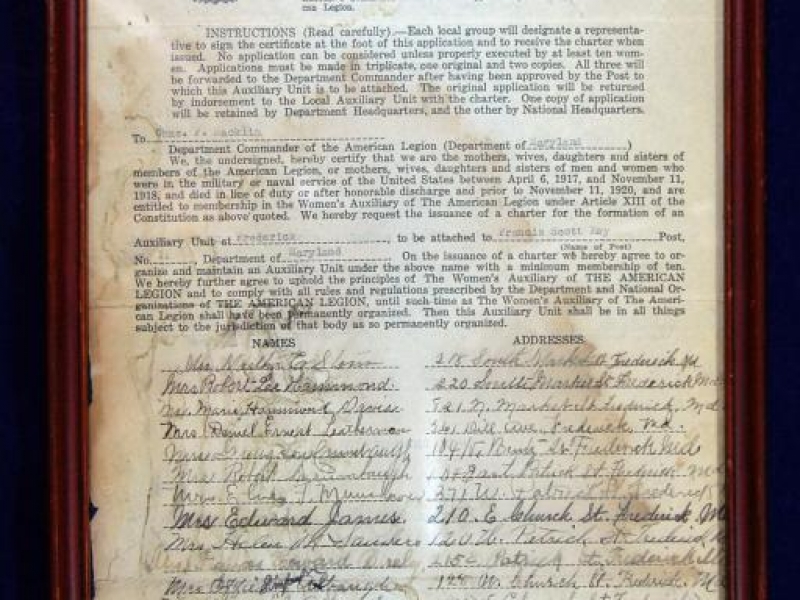 can Legion.
INSTRUCTIONS (Read carefully).—Each local group will designate a representa-
tive to sign the certificate at the foot of this application and to receive the charter when
issued. No application can be considered unless properly executed by at least ten wom-
en. Applications must be made in triplicate, one original and two copies. All three will
be forwarded to the Department Commander after having been approved by the Post to
which this Auxiliary Unit is to be attached. The original application will be returned
by indorsement to the Local Auxiliary Unit with the charter. One copy of application
will be retained by Department Headquarters, and the other by National Headquarters.
To
Department Commander of the American Legion (Department of Maryland)
We, the undersigned, hereby certify that we are the mothers, wives, daughters and sisters of
members of the American Legion, or mothers, wives, daughters and sisters of men and women who
were in the military or naval service of the United States between April 6, 1917, and November 11,
1918, and died in line of duty or after honorable discharge and prior to November 11, 1920, and are
entitled to membership in the Women's Auxiliary of The American Legion under Article XIII of the
Constitution as above quoted. We hereby request the issuance of a charter for the formation of an
Auxiliary Unit at Frederick, to be attached to Francis Scott Key Post,
(Name of Post)
No. , Department of Maryland. On the issuance of a charter we hereby agree to or-
ganize and maintain an Auxiliary Unit under the above name with a minimum membership of ten.
We hereby further agree to uphold the principles of The Women's Auxiliary of THE AMERICAN
LEGION and to comply with all rules and regulations prescribed by the Department and National Or-
ganizations of THE AMERICAN LEGION, until such time as The Women's Auxiliary of The Ameri-
can Legion shall have been permanently organized. Then this Auxiliary Unit shall be in all things
subject to the jurisdiction of that body as so permanently organized.
NAMES ADDRESSES
218 South Market St Frederick Md
Mrs Robert Lee Hammond. 220 South Market St Frederick Md
Marie Hammond Davis 521 N. Market St Frederick, Md
Mrs. Daniel Ernest Leatherman Dill Ave. Frederick, Md.
Bentz St Frederick Md
Mrs Robert East Patrick St. Frederick Md
Mrs. W. Patrick St. Frederick
Mrs Edward James 210 E Church St. Frederick Md
Mrs. Helen M. Saunders W. Patrick St. Frederick
Patrick St. Frederick Md
Mrs Effie 128 W. Church St. Frederick. Md